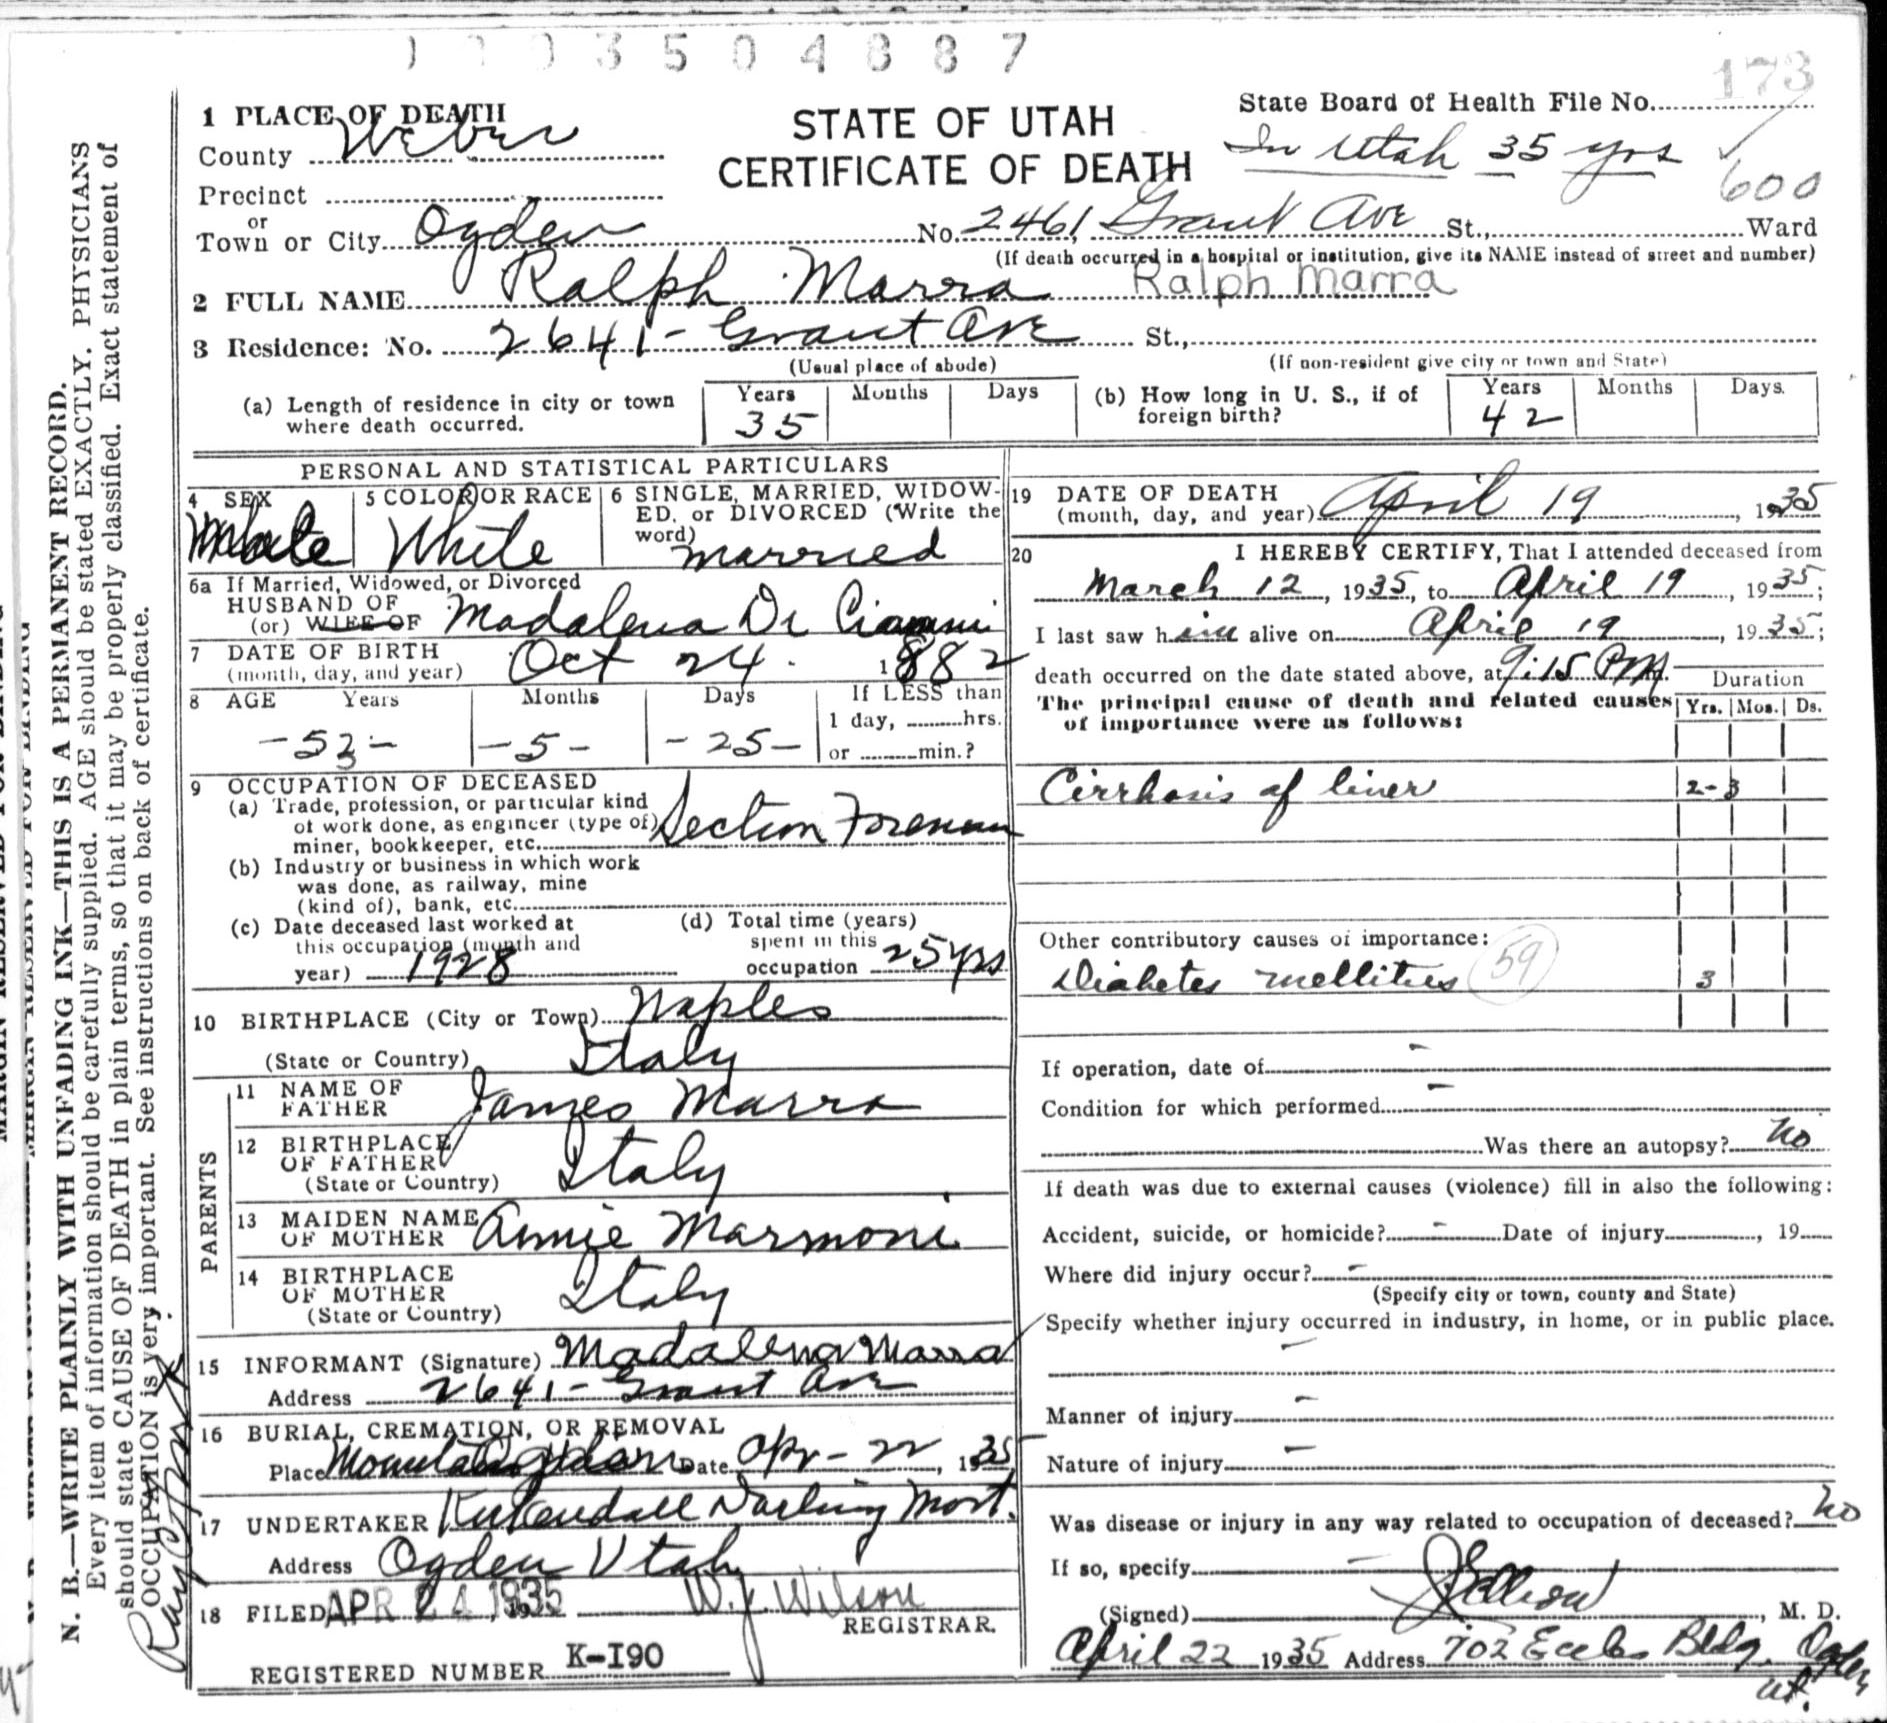 1003504887
173
1 PLACE OF DEATH
STATE OF UTAH
CERTIFICATE OF DEATH
State Board of Health File No.
In Utah 35 yrs
600
County Weber
Precinct
or
Town or City Ogden No. 2461, Grant Ave St., Ward
(If death occurred in a hospital or institution, give its NAME instead of street and number)
2 FULL NAME Ralph Marra Ralph Marra
3 Residence: No. 2641- Grant Ave St.,
(Usual place of abode) (If non-resident give city or town and State)
(a) Length of residence in city or town where death occurred. Years 35 Months Days
(b) How long in U. S., if of foreign birth? Years 42 Months Days.
PERSONAL AND STATISTICAL PARTICULARS
4 SEX Male
5 COLOR OR RACE White
6 SINGLE, MARRIED, WIDOW-
ED, or DIVORCED (Write the
word) married
6a If Married, Widowed, or Divorced
HUSBAND OF
(or) WIFE OF Madalena Di
7 DATE OF BIRTH
(month, day, and year) Oct 24. 1882
8 AGE Years Months Days If LESS than
1 day, hrs.
-53- -5- -25- or min.?
9 OCCUPATION OF DECEASED
(a) Trade, profession, or particular kind
of work done, as engineer (type of)
miner, bookkeeper, etc. Section Foreman
(b) Industry or business in which work
was done, as railway, mine
(kind of), bank, etc.
(c) Date deceased last worked at
this occupation (month and
year) 1928
(d) Total time (years)
spent in this
occupation 25 yrs
10 BIRTHPLACE (City or Town) Naples
(State or Country) Italy
PARENTS
11 NAME OF
FATHER James Marra
12 BIRTHPLACE
OF FATHER
(State or Country) Italy
13 MAIDEN NAME
OF MOTHER Annie Marmoni
14 BIRTHPLACE
OF MOTHER
(State or Country) Italy
15 INFORMANT (Signature) Madalena Marra
Address 2641- Grant Ave
16 BURIAL, CREMATION, OR REMOVAL
Place Date Apr - 22, 1935
17 UNDERTAKER Kirkendall Darling Mort.
Address Ogden Utah
18 FILED APR 24 1935 W. J. Wilson
REGISTRAR.
REGISTERED NUMBER K-190
19 DATE OF DEATH
(month, day, and year) April 19, 1935
20 I HEREBY CERTIFY, That I attended deceased from
March 12, 1935, to April 19, 1935;
I last saw him alive on April 19, 1935;
death occurred on the date stated above, at 9:15 PM.
The principal cause of death and related causes
of importance were as follows:
Duration
Yrs. Mos. Ds.
Cirrhosis of liver 2-3
Other contributory causes of importance:
Diabetes mellitus 59 3
If operation, date of -
Condition for which performed -
Was there an autopsy? no
If death was due to external causes (violence) fill in also the following:
Accident, suicide, or homicide? - Date of injury, 19
Where did injury occur? -
(Specify city or town, county and State)
Specify whether injury occurred in industry, in home, or in public place.
-
Manner of injury -
Nature of injury -
Was disease or injury in any way related to occupation of deceased? no
If so, specify -
(Signed), M. D.
April 22 1935 Address 702 Eccles Bldg. Ogden
Ut.
N. B.—WRITE PLAINLY WITH UNFADING INK—THIS IS A PERMANENT RECORD.
Every item of information should be carefully supplied. AGE should be stated EXACTLY. PHYSICIANS
should state CAUSE OF DEATH in plain terms, so that it may be properly classified. Exact statement of
OCCUPATION is very important. See instructions on back of certificate.